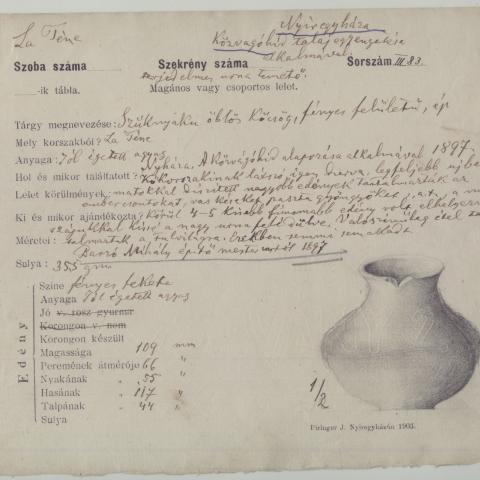 La Téne
Nyíregyháza
Közvágóhid talaj egyengetése
alkalmával
Szoba száma
Szekrény száma
Sorszám III 83.
terjedelmes urna temető.
-ik tábla.
Magános vagy csoportos lelet.
Tárgy megnevezése: Szűknyaku öblös Köcsög, fényes felületü, ép
Mely korszakból? La Téne
Anyaga: Jól égetett agyag
Hol és mikor találtatott? Nyháza. A Közvágóhid alapozása alkalmával 1897.
Kőkorszakinak látszó, igen durva, legfeljebb
Lelet körülmények: matokkal diszitett nagyobb edények tartalmazták az
embercsontokat, vas késeket, paszta gyöngyöket, s. a. t. a
Ki és mikor ajándékozta? Körül 4-5 kisebb finomabb edény volt elhelyezve
szájukkal kissé a nagy urna felé dülve. Valószinüleg étel
Méretei: talmaztak a tulvilágra. Ezekben semmi sem akadt
Barzó Mihály épitő mester 1897
Sulya: 355 grm
Edény
Szine fényes fekete
Anyaga Jól égetett agyag
Jó v. rosz gyurmu
Korongon v. nom
Korongon készült
Magassága 109 mm
Peremének átmérője 66 "
Nyakának " 55 "
Hasának " 117 "
Talpának " 44 "
Sulya
1/2
Piringer J. Nyíregyházán 1903.